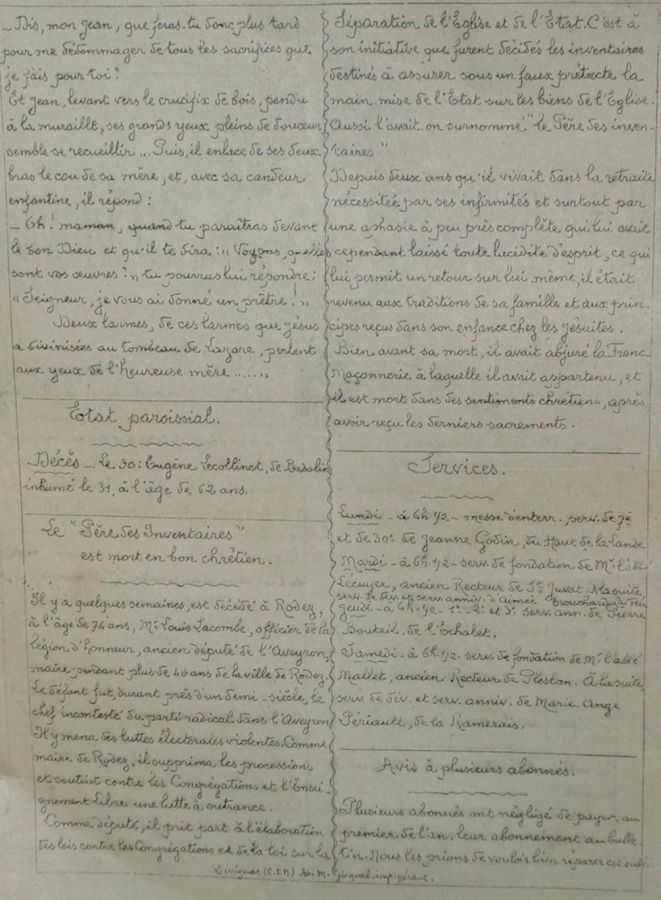 — Dis, mon Jean, que feras-tu donc plus tard
pour me dédommager de tous les sacrifices que
je fais pour toi ?
Et Jean, levant vers le crucifix de bois, pendu
à la muraille, ses grands yeux pleins de douceur
semble se recueillir ... Puis, il enlace de ses deux
bras le cou de sa mère, et, avec sa candeur
enfantine, il répond :
— Oh ! maman, quand tu paraîtras devant
le bon Dieu et qu'il te dira : « Voyons, quelles
sont vos œuvres ? » tu pourras lui répondre :
« Seigneur, je vous ai donné un prêtre ! »
Deux larmes, de ces larmes que Jésus
a divinisées au tombeau de Lazare, perlent
aux yeux de l'heureuse mère ..... »
Etat paroissial.
Décès — Le 30 : Eugène Lecollinet, de
inhumé le 31, à l'âge de 62 ans.
Le "Père des Inventaires"
est mort en bon chrétien.
Il y a quelques semaines, est décédé à Rodez,
à l'âge de 74 ans, Mr Louis Lacombe, officier de la
légion d'honneur, ancien député de l'Aveyron,
maire pendant plus de 40 ans de la ville de Rodez.
Le défunt fut, durant près d'un demi-siècle, le
chef incontesté du parti radical dans l'Aveyron
Il y mena des luttes électorales violentes. Comme
maire de Rodez, il supprima les processions
et soutint contre les Congrégations et l'Ensei-
gnement libre une lutte à outrance.
Comme député, il prit part à l'élaboration
des lois contre les Congrégations et de la loi sur la
Séparation de l'Eglise et de l'Etat. C'est à
son initiative que furent décidés les inventaires
destinés à assurer sous un faux prétexte la
main mise de l'Etat sur les biens de l'Eglise.
Aussi l'avait-on surnommé "le Père des inven-
taires"
Depuis deux ans qu'il vivait dans la retraite
nécessitée par ses infirmités et surtout par
une aphasie à peu près complète qui lui avait
cependant laissé toute lucidité d'esprit, ce qui
lui permit un retour sur lui-même, il était
revenu aux traditions de sa famille et aux prin-
cipes reçus dans son enfance chez les Jésuites.
Bien avant sa mort, il avait abjuré la Franc-
Maçonnerie à laquelle il avait appartenu, et
il est mort dans des sentiments chrétiens, après
avoir reçu les derniers sacrements.
Services.
Lundi — à 6h. 1/2 — messe d'enterr. serv. de 7e
et de 30e de Jeanne Godin, du Haut de la lande
Mardi — à 6h. 1/2 — serv. de fondation de Mr l'abbé
Lécuyer, ancien Recteur de St Juvat. A la suite
serv. de dév. et serv. anniv. d'Aimée
Jeudi — à 6h. 1/2 — 1e — 2e et 3e serv. ann. de Pierre
Bouteil, de l'Echalet.
Samedi — à 6h. 1/2 — serv. de fondation de Mr l'abbé
Mallet, ancien Recteur de Plestan. A la suite,
serv. de dév. et serv. anniv. de Marie-Ange
Périault, de la Ramerais.
Avis à plusieurs abonnés.
Plusieurs abonnés ont négligé de payer, au
premier de l'an, leur abonnement au bulle-
tin. Nous les prions de vouloir bien réparer cet oubli.